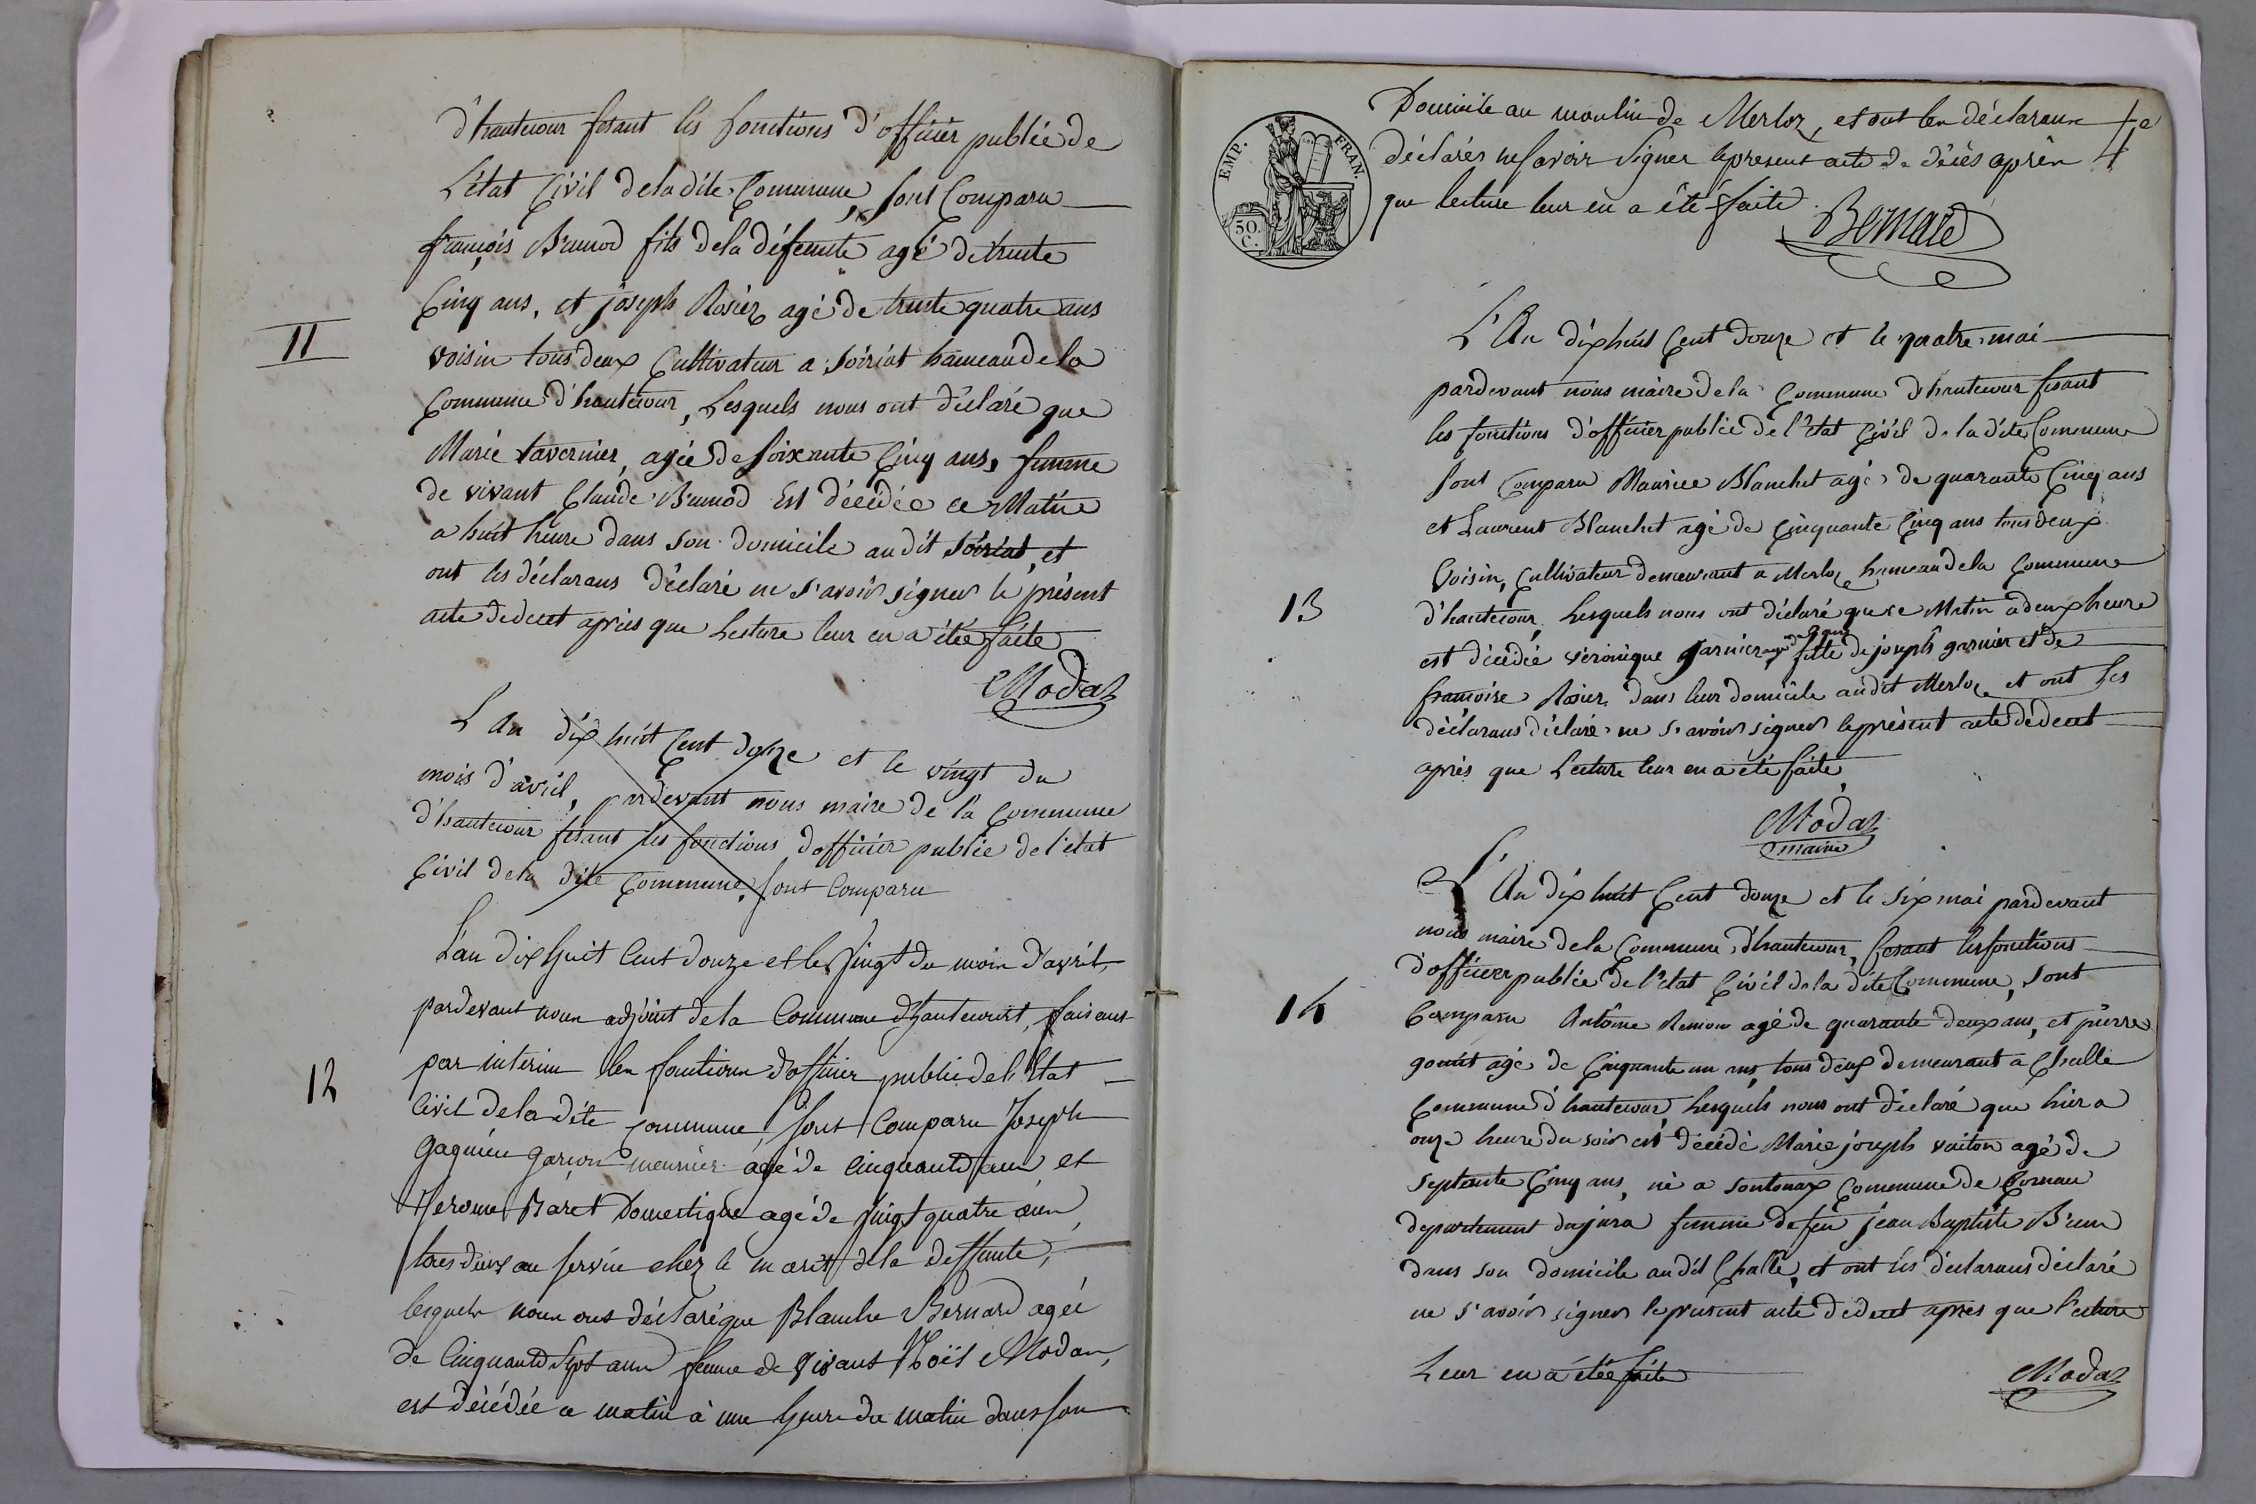 d'hautecour fesant les fonctions d'officier public de
L'état Civil de la dite Commune, sont Comparu
françois Brunod fils de la défeunte agé de trente
Cinq ans, et joseph Rosier agé de trente quatre ans
voisin tous deux Cultivateur a soiriat hameau de la
Commune d'hautecour, Lesquels nous ont déclaré que
Marie tavernier, agée de soixante Cinq ans, femme
de vivant Claude Brunod Est décédée ce Matin
a huit heure dans son domicile au dit soiriat, et
ont les déclarans déclaré ne s'avoir signer le présent
acte de decet après que Lecture leur en a étée faite
Modas
11
L'An dix huit Cent douze et le vingt du
mois d'avril, pardevant nous maire de la Commune
d'hautecour fesant les fonctions d'officier public de l'état
Civil de la dite Commune, sont Comparu
L'an dix huit Cent douze et le Vingt du mois d'avril
pardevant nous adjoint de la Commune d'hautecourt, faisant
par interim les fonctions d'officier public de l'Etat
Civil de la dite commune, sont Comparu Joseph
Gagnieu garçon meunier agé de Cinquante ans et
Jerome Baret Domestique agé de Vingt quatre ans
tous deux au service chez le marit de la deffunte,
lesquels nous ont déclaré que Blanche Bernard agée
de Cinquante Sept ans femme de Vivant Noël Modas,
est décédée ce matin à une heure du matin dans son
12
Domicile au moulin de Merloz, et ont les déclarans
déclarés ne savoir signer le present acte de décès après
que lecture leur en a été faite.
Bernard
EMP. FRAN.
50. C.
L'An dix huit Cent douze et le quatre mai
pardevant nous maire de la Commune d'hautecour fesant
les fonctions d'officier public de l'état Civil de la dite Commune
sont Comparu Maurice Blanchet agé de quarante Cinq ans
et Laurent Blanchet agé de Cinquante Cinq ans tous deux
Voisin, Cultivateur demeurant a Merloz hameau de la Commune
d'hautecour, Lesquels nous ont déclaré que ce Matin a deux heure
est décédée véronique garnier fille de joseph garnier et de
francoise Rosier, dans leur domicile au dit Merloz et ont Les
déclarans déclaré ne s'avoir signer le présent acte de decet
après que Lecture leur en a été faite
Modas
maire
13
L'An dix huit Cent douze et le six mai pardevant
nous maire de la Commune d'hautecour, fesant les fonctions
d'officier public de l'état Civil de la dite Commune, sont
Comparu Antoine Remond agé de quarante deux ans, et pierre
agé de Cinquante un ans, tous deux demeurant a Challe
Commune d'hautecour Lesquels nous ont déclaré que hier a
onze heure du soir est décédé Marie joseph agé de
septente Cinq ans, né a Commune de Cornau
departement du jura femme de feu jean Baptiste Brun
dans son domicile au dit Challe, et ont les déclarans déclaré
ne s'avoir signer le présent acte de decet après que l'ecture
Leur en a étée faite
Modas
14